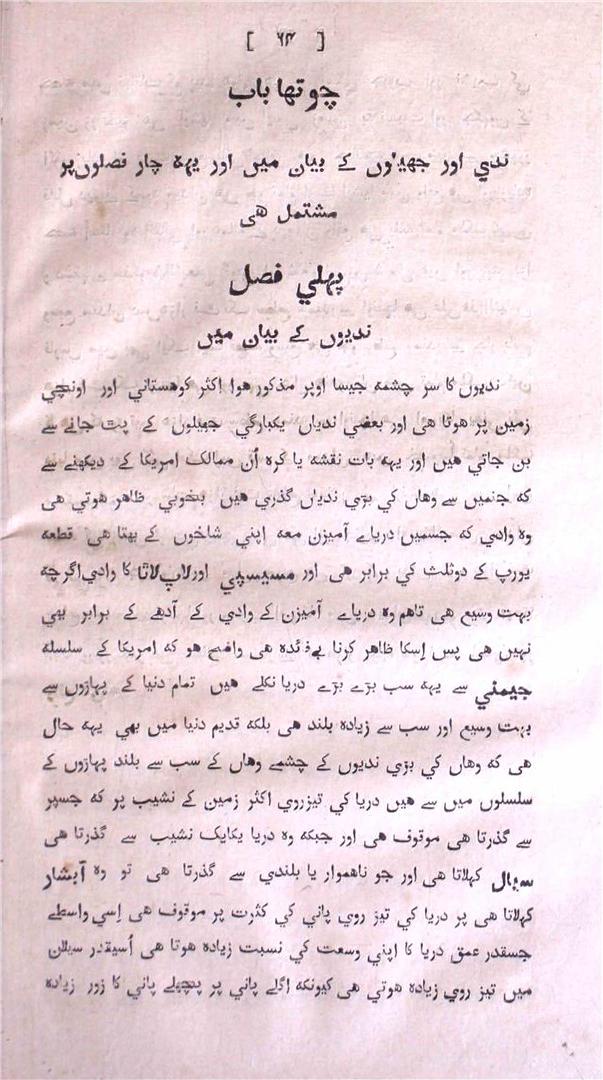 [ ۶۴ ]
چوتھا باب
ندي اور جھیلوں کے بیان میں اور یہہ چار فصلوں پر
مشتمل هی
پہلي فصل
ندیوں کے بیان میں
ندیوں کا سر چشمہ جیسا اوپر مذکور هوا اکثر کوهستاني اور اونچي
زمین پر هوتا هی اور بعضي ندیاں یکبارگي جھیلوں کے پٹ جانے سے
بن جاتي هیں اور یہہ بات نقشہ یا کرہ اُن ممالک امریکا کے دیکھنے سے
کہ جنمیں سے وهاں کي بڑي ندیاں گذري هیں بخوبي ظاهر هوتي هی
وہ وادي کہ جسمیں دریاے آمیزن معہ اپني شاخوں کے بهتا هی قطعہ
یورپ کے دوثلث کي برابر هی اور مسیسپي اور لاپلاٹا کا وادي اگرچہ
بہت وسیع هی تاهم وہ دریاے آمیزن کے وادي کے آدھے کے برابر بھي
نہیں هی پس اِسکا ظاهر کرنا بےفائدہ هی واضح هو کہ امریکا کے سلسلہ
جیمني سے یہہ سب بڑے بڑے دریا نکلے هیں تمام دنیا کے پہاڑوں سے
بہت وسیع اور سب سے زیادہ بلند هی بلکہ قدیم دنیا میں بھي یہہ حال
هی کہ وهاں کي بڑي ندیوں کے چشمے وهاں کے سب سے بلند پہاڑوں کے
سلسلوں میں سے هیں دریا کي تیزروي اکثر زمین کے نشیب پر کہ جسپر
سے گذرتا هی موقوف هی اور جبکہ وہ دریا یکایک نشیب سے گذرتا هی
سیال کہلاتا هی اور جو ناهموار یا بلندي سے گذرتا هی تو وہ آبشار
کہلاتا هی پر دریا کي تیز روي پاني کي کثرت پر موقوف هی اِسي واسطے
جسقدر عمق دریا کا اپني وسعت کي نسبت زیادہ هوتا هی اُسیقدر سیلان
میں تیز روي زیادہ هوتي هی کیونکہ اگلے پاني پر پچھلے پاني کا زور زیادہ